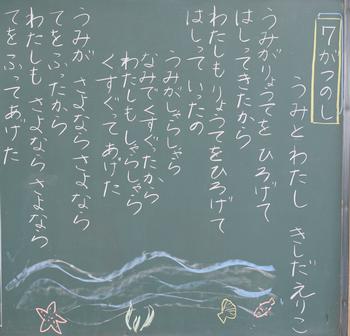 7がつのし
うみとわたし きしだえりこ
うみがりょうてを ひろげて
はしってきたから
わたしも りょうてをひろげて
はしって いったの
うみがしゃらしゃら
なみでくすぐたから
わたしも しゃらしゃら
くすぐって あげた
うみが さよならさよなら
てをふったから
わたしも さよなら さよなら
てを ふってあげた